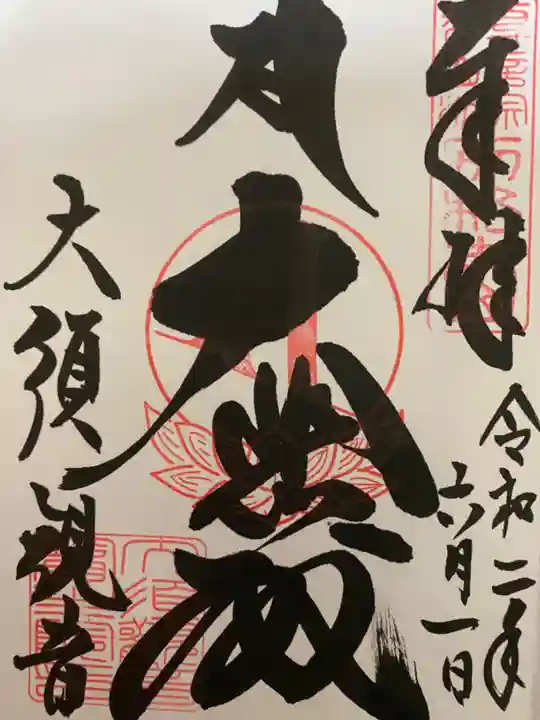 奉拝
令和二年
六月一日
大悲殿
大須観音